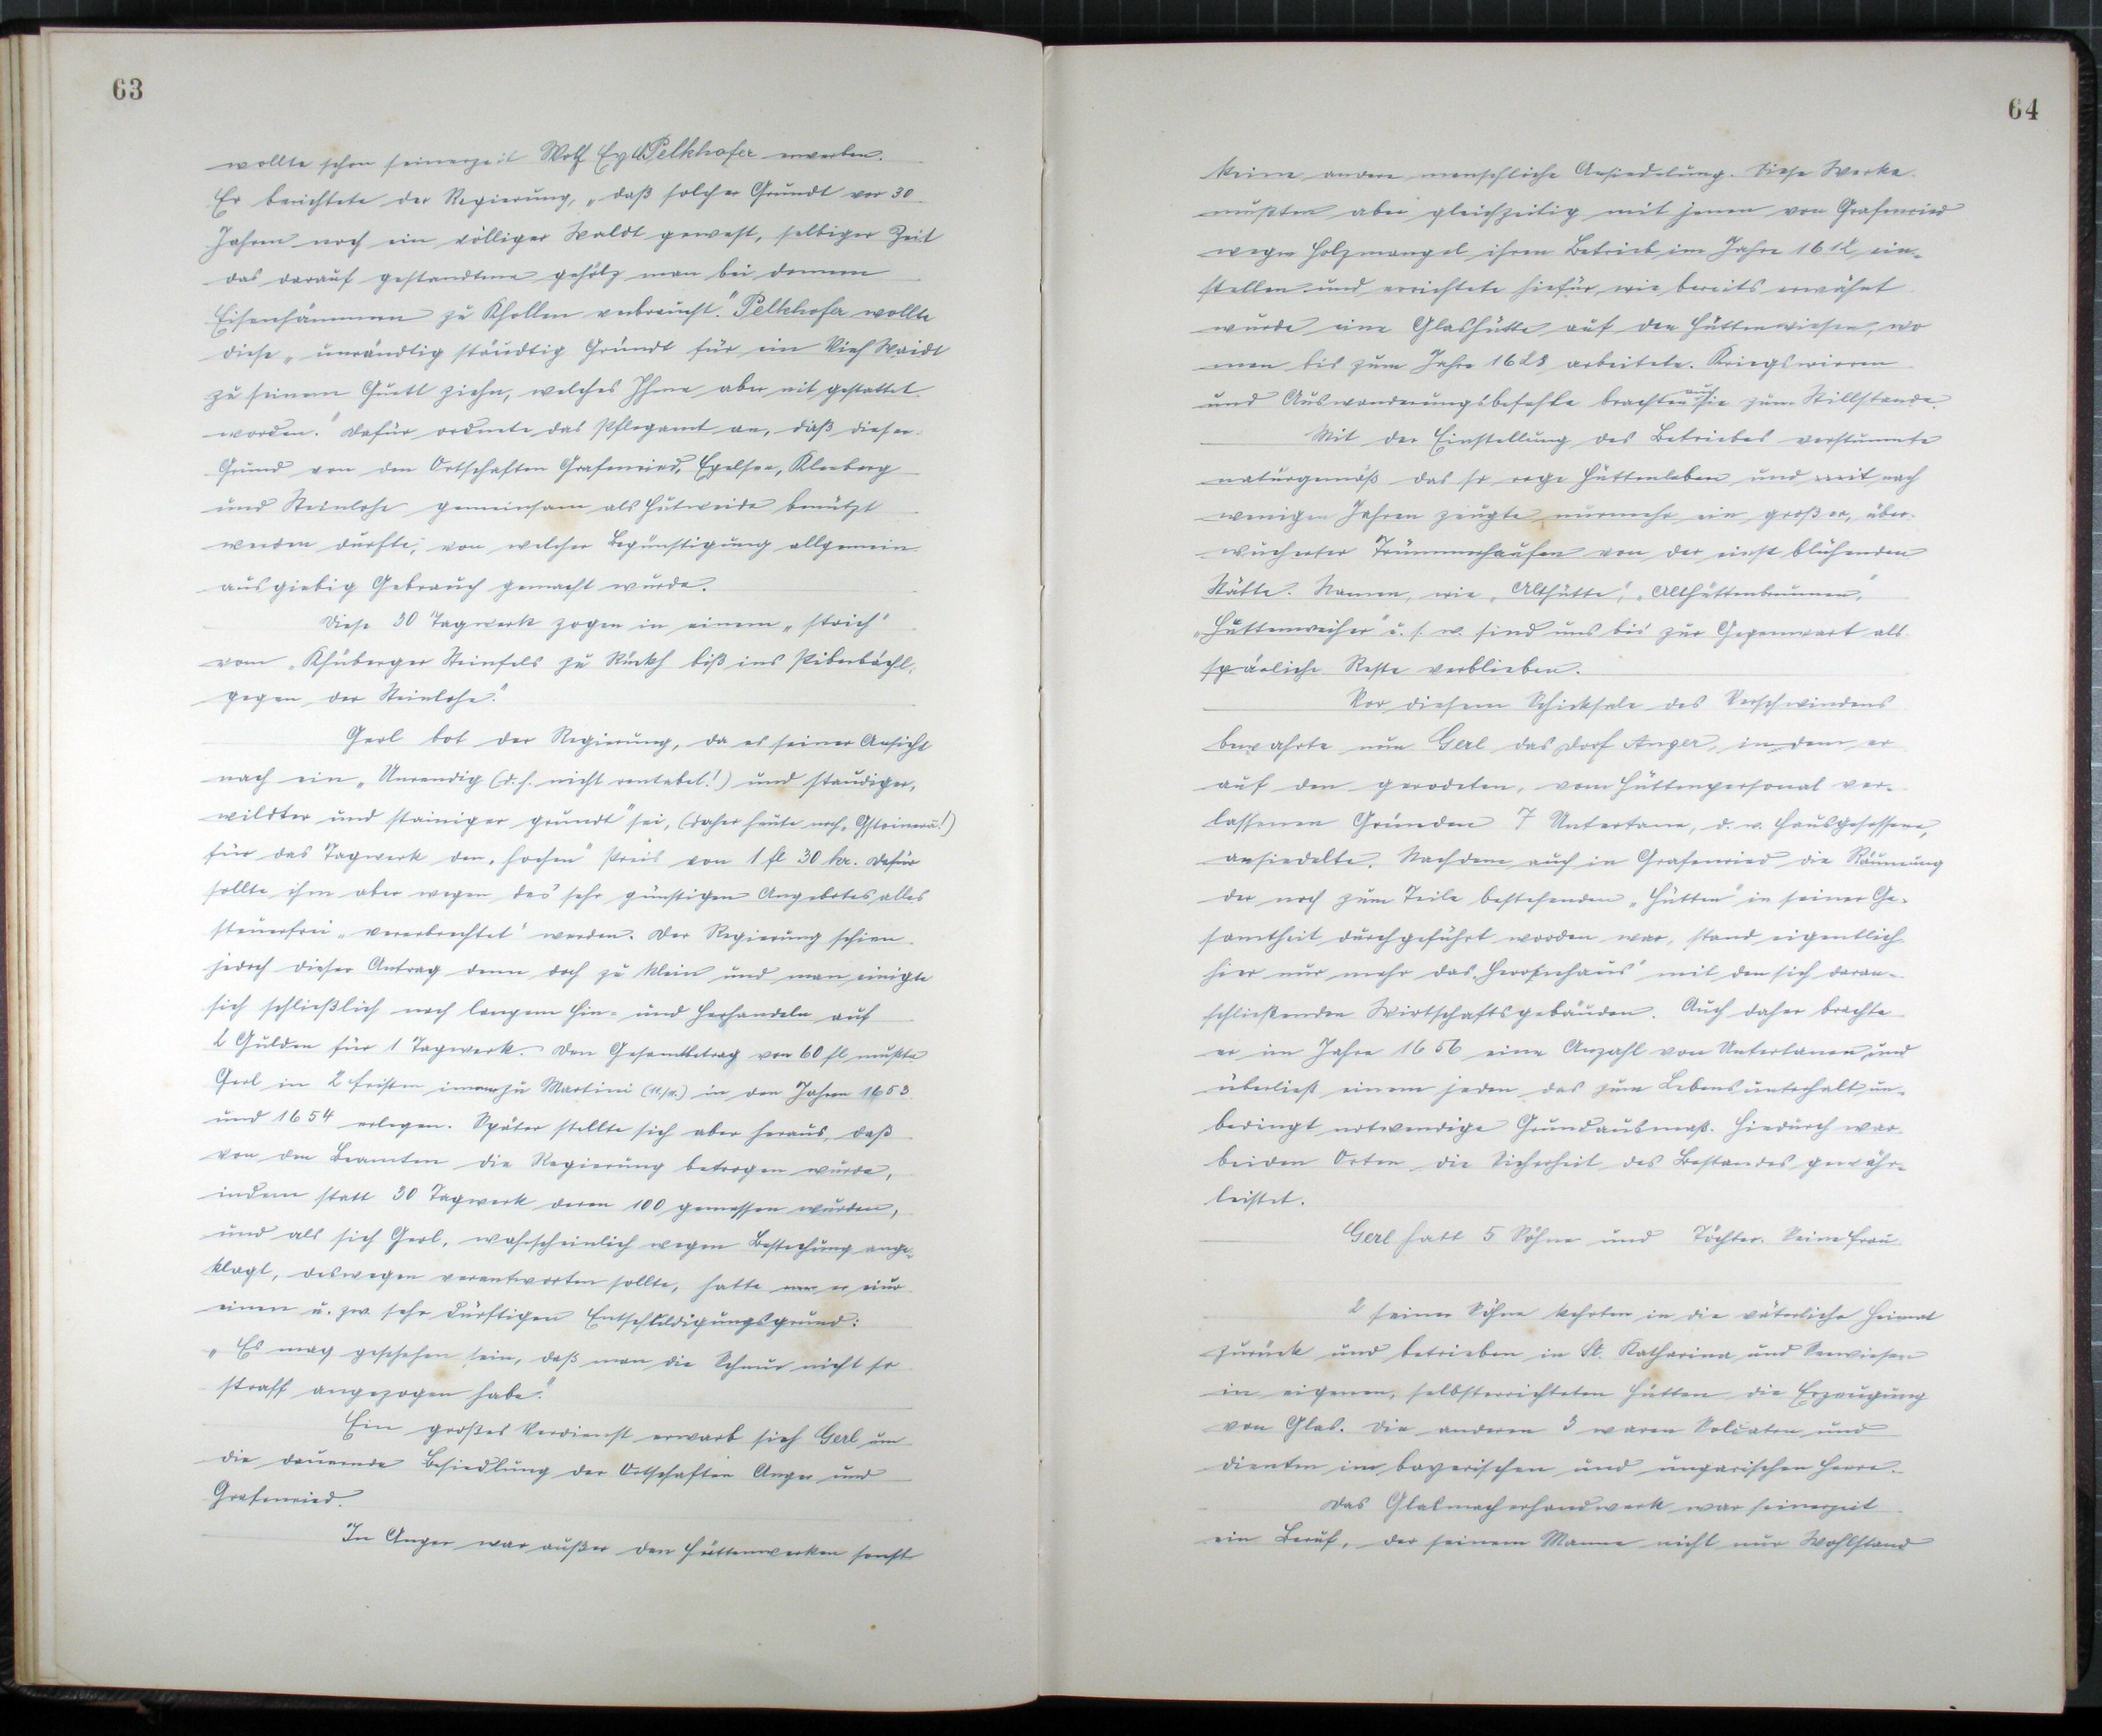 63
wollte schon seinerzeit Wolf Egid Pelkhofer erwerben.
Er berichtete der Regierung, „daß solcher Grundt vor 30
Jahren noch ein völliger Waldt gewest, selbiger Zeit
das darauf gestandtene gehölz man bei denen
Eisenhämmern zu Khollen verbraucht." Pelkhofer wollte
diese „unrändtig stäudtig Gründt für ein Vieh Waidt
zu seinem Guett ziehn, welches Ihme aber nit gestattet
worden." Dafür ordnete das Pflegamt an, daß dieser
Grund von den Ortschaften Grafenried, Egelsee, Kleeberg
und Steinlohe gemeinsam als Hutweide benützt
werden durfte, von welcher Begünstigung allgemein
ausgiebig Gebrauch gemacht wurde.
Diese 30 Tagwerk zogen in einem „strich"
vom „Khüberger Steinfels zu Rückh biß ins Biberbächl,
gegen der Steinlohe."
Gerl bot der Regierung, da es seiner Ansicht
nach ein „Unrendig (d.h. nicht rentabel!) und staudiger,
wildter und stainiger grundt" sei, (daher heute noch „Gstoinera!)
für das Tagwerk den „hochen" Preis von 1 fl 30 kr. Dafür
sollte ihm aber wegen des sehr günstigen Angebotes alles
steuerfrei „vererbrechtet" werden. Der Regierung schien
jedoch dieser Antrag denn doch zu klein und man einigte
sich schließlich nach langem Hin- und Herhandeln auf
2 Gulden für 1 Tagwerk. Den Gesamtbetrag von 60 fl mußte
Gerl in 2 Fristen immer zu Martini (11./11.) in den Jahren 1653
und 1654 erlegen. Später stellte sich aber heraus, daß
von den Beamten die Regierung betrogen wurde,
indem statt 30 Tagwerk deren 100 gemessen wurden,
und als sich Gerl, wahrscheinlich wegen Bestechung ange-
klagt, deswegen verantworten sollte, hatte er nur
einen u. zw. sehr dürftigen Entschuldigungsgrund:
„Es mag geschehen sein, daß man die Schnur nicht so
straff angezogen habe."
Ein großes Verdienst erwarb sich Gerl um
die dauernde Besiedlung der Ortschaften Anger und
Grafenried.
In Anger war außer den Hüttenwerken sonst
64
keine andere menschliche Ansiedelung. Diese Werke
mußten aber gleichzeitig mit jenen von Grafenried
wegen Holzmangel ihren Betrieb im Jahre 1612 ein-
stellen und errichtete hiefür, wie bereits erwähnt
wurde eine Glashütte auf den Hüttenwiesen, wo
man bis zum Jahre 1628 arbeitete. Kriegswirren
und Auswanderungsbefehle brachten auch sie zum Stillstande.
Mit der Einstellung des Betriebes verstummte
naturgemäß das so rege Hüttenleben und nach
wenigen Jahren zeugte nurmehr ein großer, über-
wucherter Trümmerhaufen von der einst blühenden
Stätte. Namen, wie „Althütte", „Althüttenbrunnen",
„Hüttenweiher" u. s. w. sind uns bis zur Gegenwart als
spärliche Reste verblieben.
Vor diesem Schicksale des Verschwindens
bewahrte nun Gerl das Dorf Anger, in dem er
auf den gerodeten, vom Hüttenpersonal ver-
lassenen Gründen 7 Untertane, d. w. Hausgesessene,
ansiedelte. Nachdem auch in Grafenried die Räumung
der noch zum Teile bestehenden „Hütten" in seiner Ge-
samtheit durchgeführt worden war, stand eigentlich
hier nur mehr das „Herrenhaus" mit den sich daran-
schließenden Wirtschaftsgebäuden. Auch daher brachte
er im Jahre 1656 eine Anzahl von Untertanen und
überließ einem jeden das zum Lebensunterhalt un-
bedingt notwendige Grundausmaß. Hiedurch war
beiden Orten die Sicherheit des Bestandes gewähr-
leistet.
Gerl hatt 5 Söhne und Töchter. Seine Frau
2 seiner Söhne kehrten in die väterliche Heimat
zurück und betrieben in St. Katharina und Seewiesen
in eigenen, selbsterrichteten Hütten die Erzeugung
von Glas. Die anderen 3 waren Soldaten und
dienten im bayerischen und ungarischen Heere.
Das Glasmacherhandwerk war seinerzeit
ein Beruf, der seinem Manne nicht nur Wohlstand